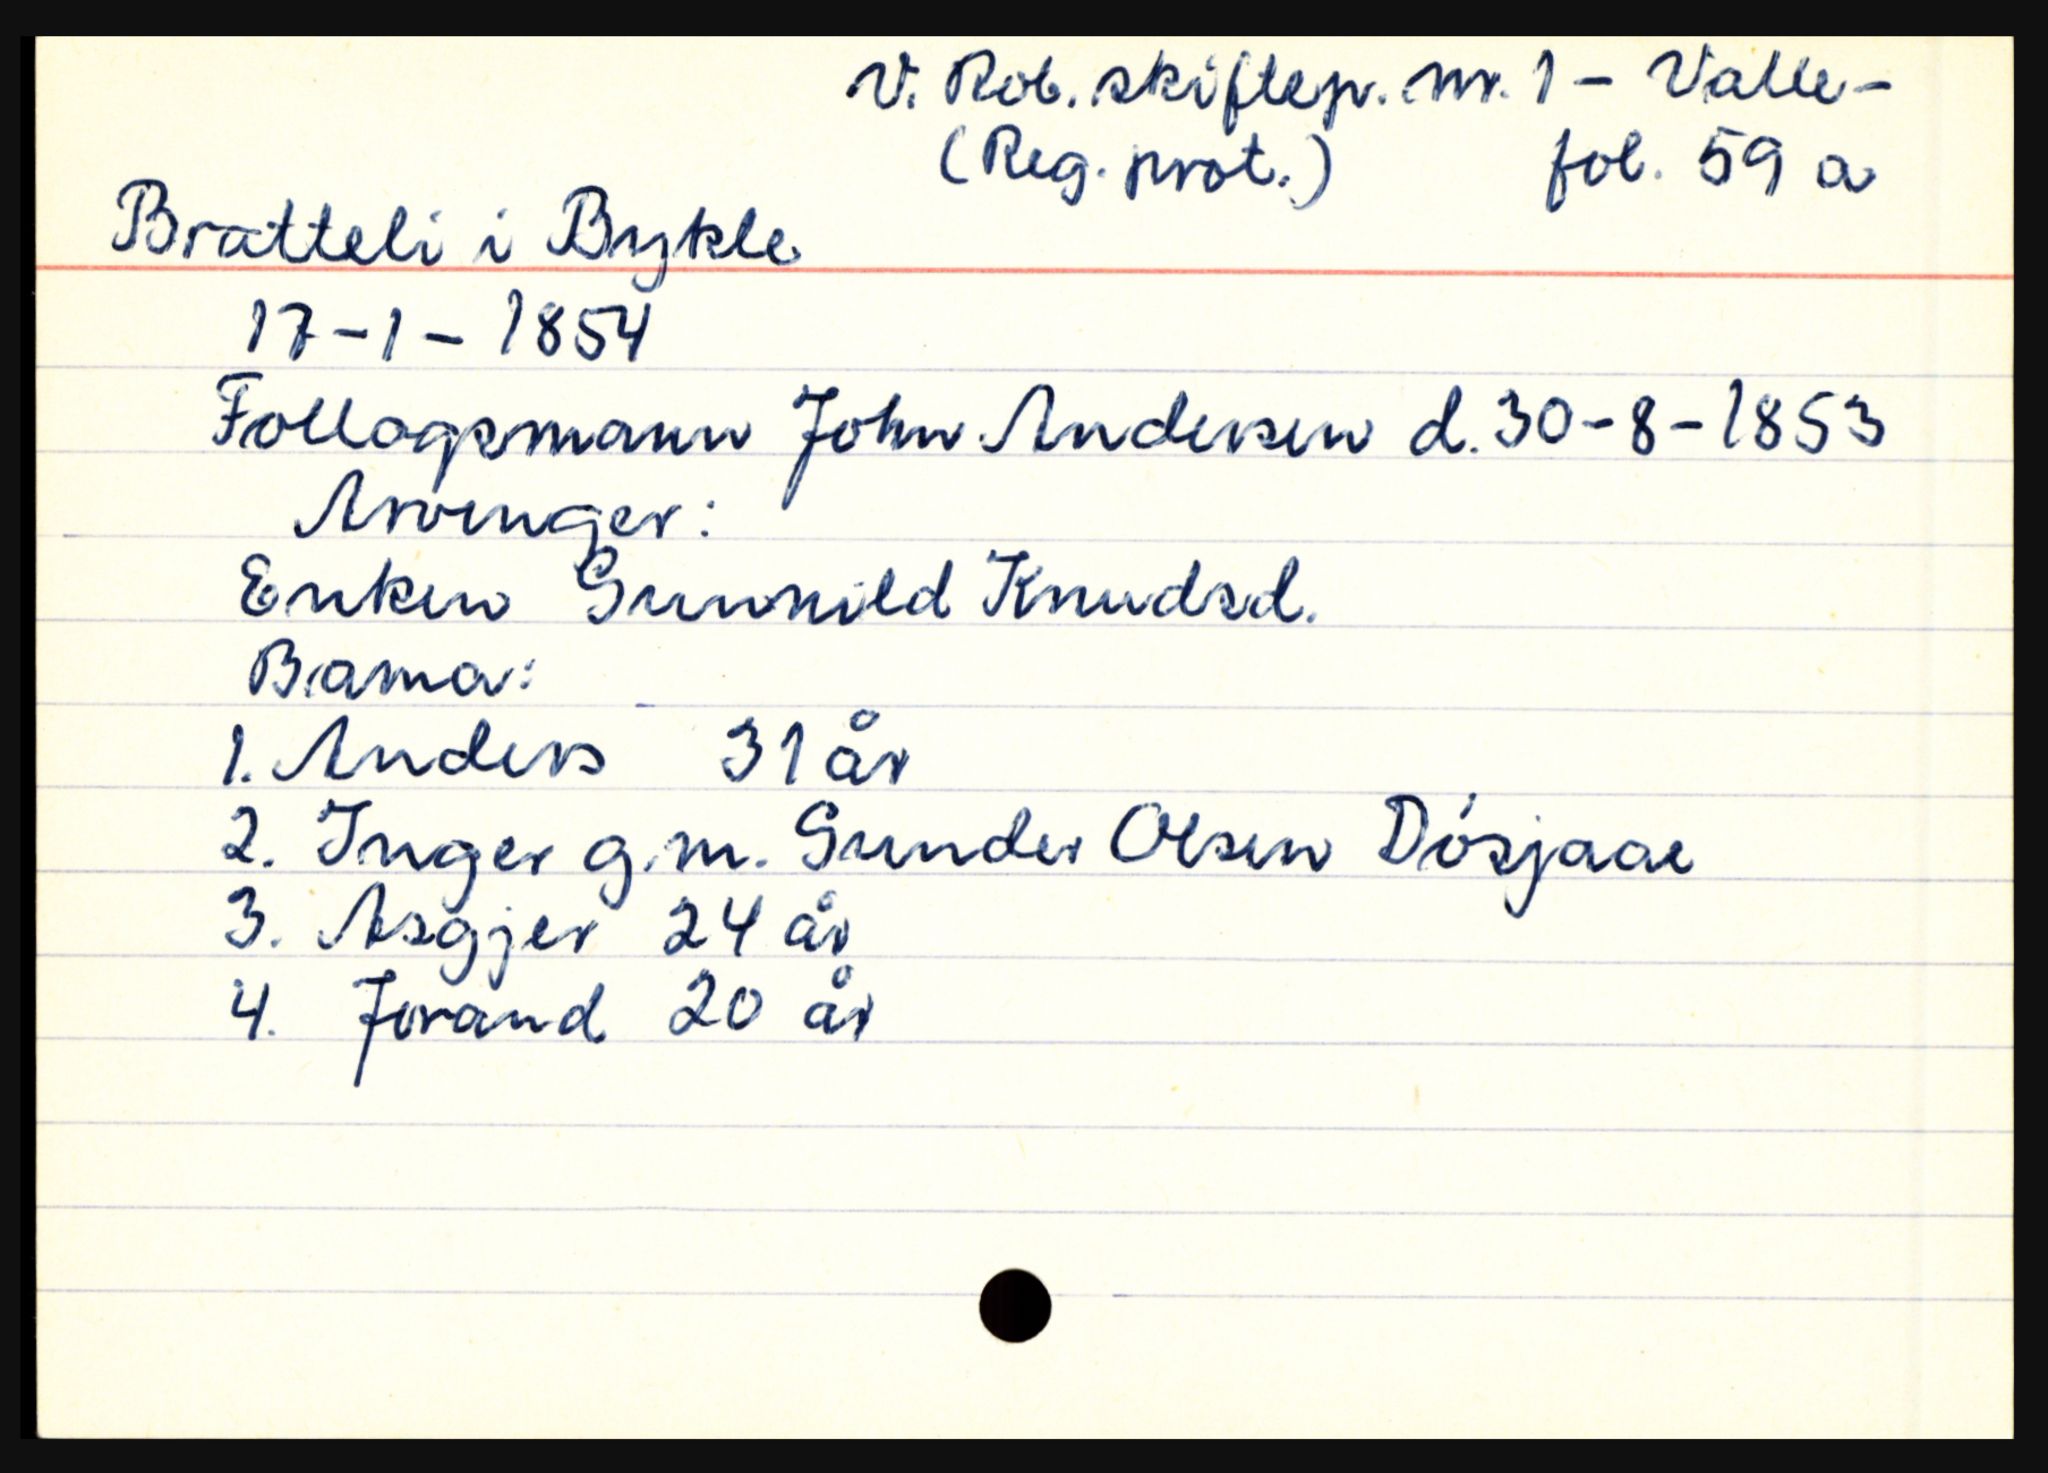 V. Rob. skiftep. nr. 1 - Valle -
(Reg. prot.) fol. 59 a
Bratteli i Bykle
17-1-1854
Follogsmann John Andersen d. 30-8-1853
Arvinger:
Enken Gunnild Knudsd.
Barna:
1. Anders 31 år
2. Inger g. m. Gunder Olsen Dósjaae
3. Asgjer 24 år
4. Jorand 20 år